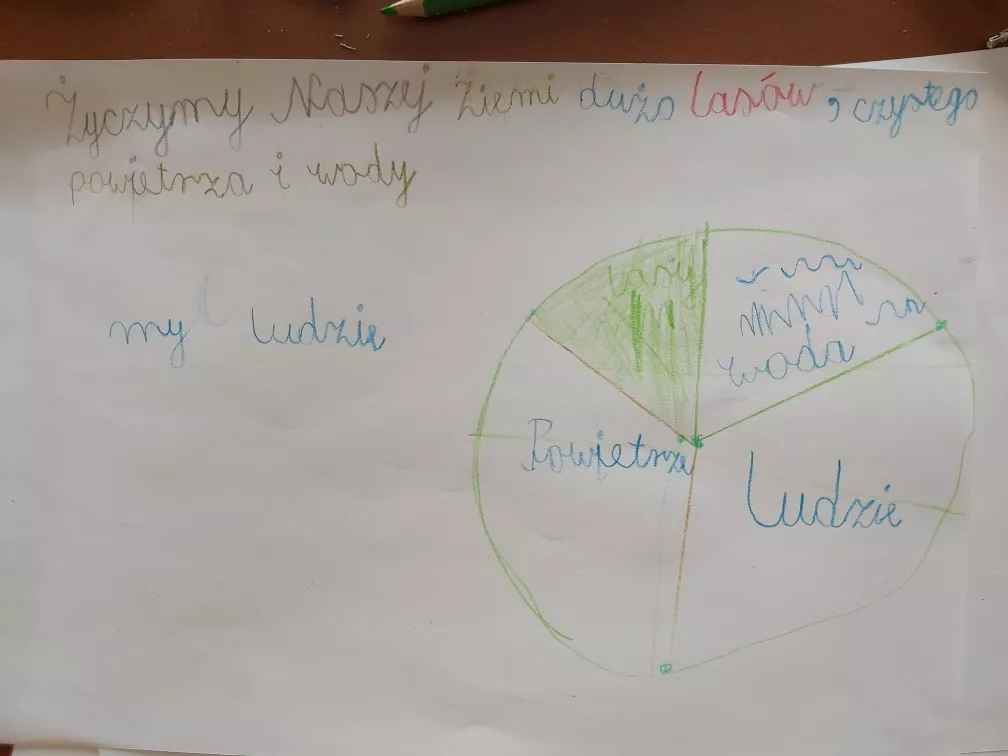 Życzymy Naszej Ziemi dużo lasów, czystego
powietrza i wody
my ludzie
lasy
woda
Powietrze
Ludzie